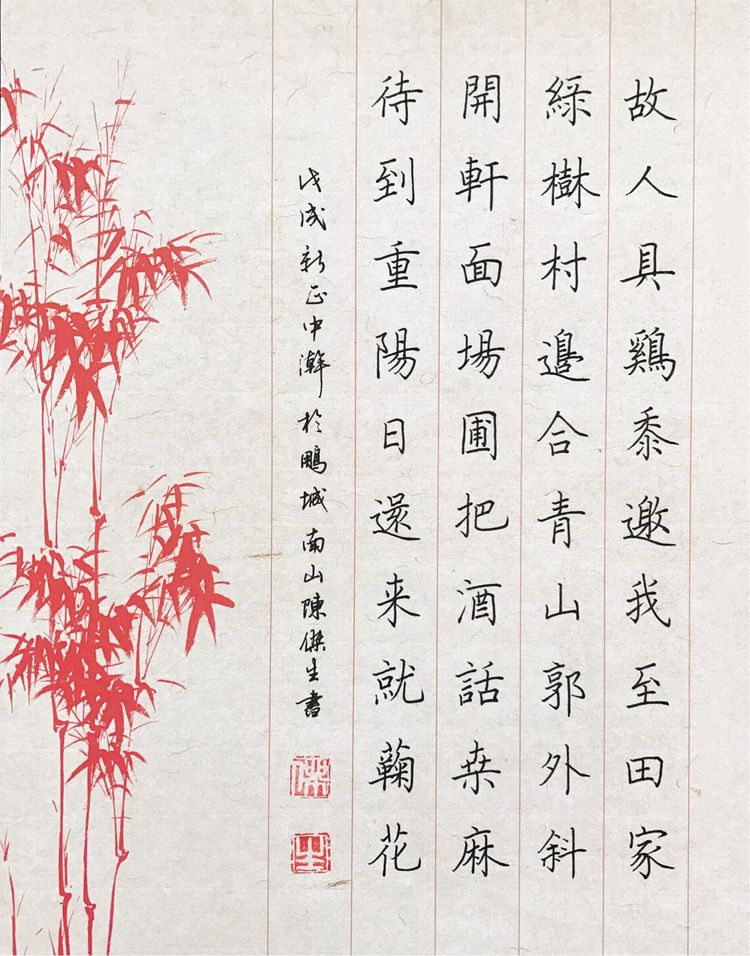 故人具鷄黍邀我至田家
綠樹村邊合青山郭外斜
開軒面場圃把酒話桒麻
待到重陽日還来就蘜花
戊戌新正中澣於鵬城南山陳傑生書
傑
生